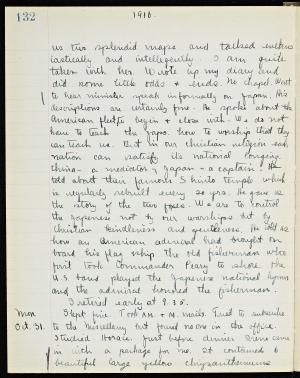 132
1910.
us two splendid maps and talked enthus
iastically and intelligently. I am quite
taken with her. Wrote up my diary and
did some little odds & ends. No chapel. Went
to hear minister speak informally on Japan. His
descriptions are certainly fine. He spoke about the
American fleets begin & close with. We do not
have to teach the Japs. how to worship that they
can teach us. But in our christian religion each
nation can satisfy its national longing
China - a mediator; Japan - a captain. He
told about their famous Shinto temple which
is regularly rebuilt every 20 yrs. began us
the story of the two foxes. We are to control
the Japanese not by our warships but by
Christian kindliness and gentleness. He told us
how an American admiral had brought on
board his flag ship the old fisherman who
first took Commander Peary to shore. The
U.S. band played the Japanese national hymn
and the admiral honored the fisherman.
I retired early at 9.35.
Mon Slept fine. Took A.M. & M. mails. Tried to subscribe
Oct. 31. to the Miscellany but found no one in the office.
Studied Horace. Just before dinner came
in with a package for me. It contained 6
beautiful large yellow chrysanthemums